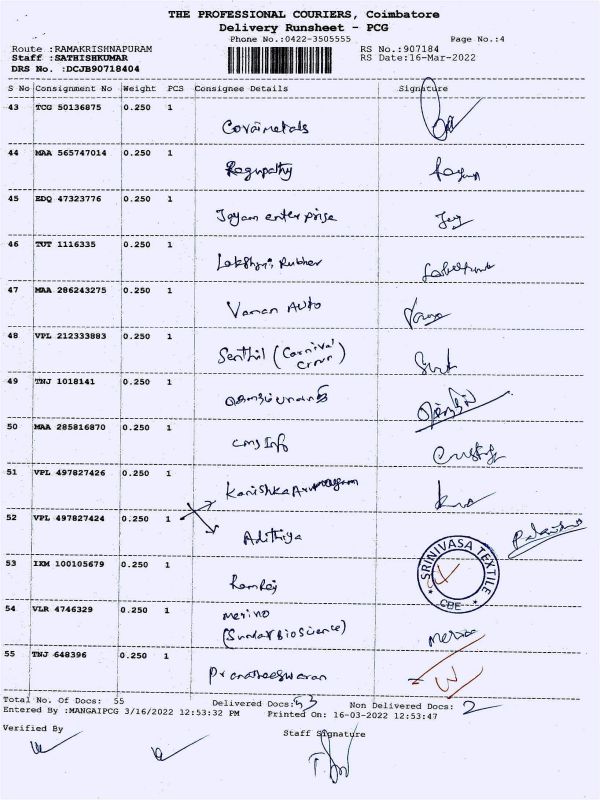 THE PROFESSIONAL COURIERS, Coimbatore
Delivery Runsheet - PCG
Phone No.:0422-3505555 Page No.:4
Route :RAMAKRISHNAPURAM RS No.:907184
Staff :SATHISHKUMAR RS Date:16-Mar-2022
DRS No. :DCJB90718404
S No Consignment No Weight PCS Consignee Details Signature
43 TCG 50136875 0.250 1
Covaimetals
44 MAA 565747014 0.250 1
Ragupathy
45 EDQ 47323776 0.250 1
Jayam enterprise
46 TUT 1116335 0.250 1
Lakshmi Rubber
47 MAA 286243275 0.250 1
Vaman Auto
48 VPL 212333883 0.250 1
Senthil (Carnival
Crown)
49 TNJ 1018141 0.250 1
50 MAA 285816870 0.250 1
cms Info
51 VPL 497827426 0.250 1
Kanishka
52 VPL 497827424 0.250 1
Adithiya
53 IXM 100105679 0.250 1
Ramraj
SRINIVASA TEXTILE
CBE
54 VLR 4746329 0.250 1
Merino
(Sundar BioScience)
55 TNJ 648396 0.250 1
Pranatheeswaran
Total No. Of Docs: 55 Delivered Docs: 53 Non Delivered Docs: 2
Entered By :MANGAIPCG 3/16/2022 12:53:32 PM Printed On: 16-03-2022 12:53:47
Verified By Staff Signature